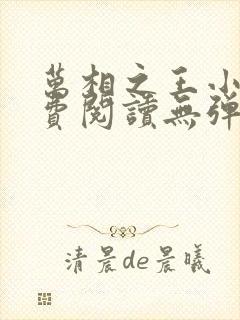 萬相之王小
費閱讀無彈
清晨de晨曦